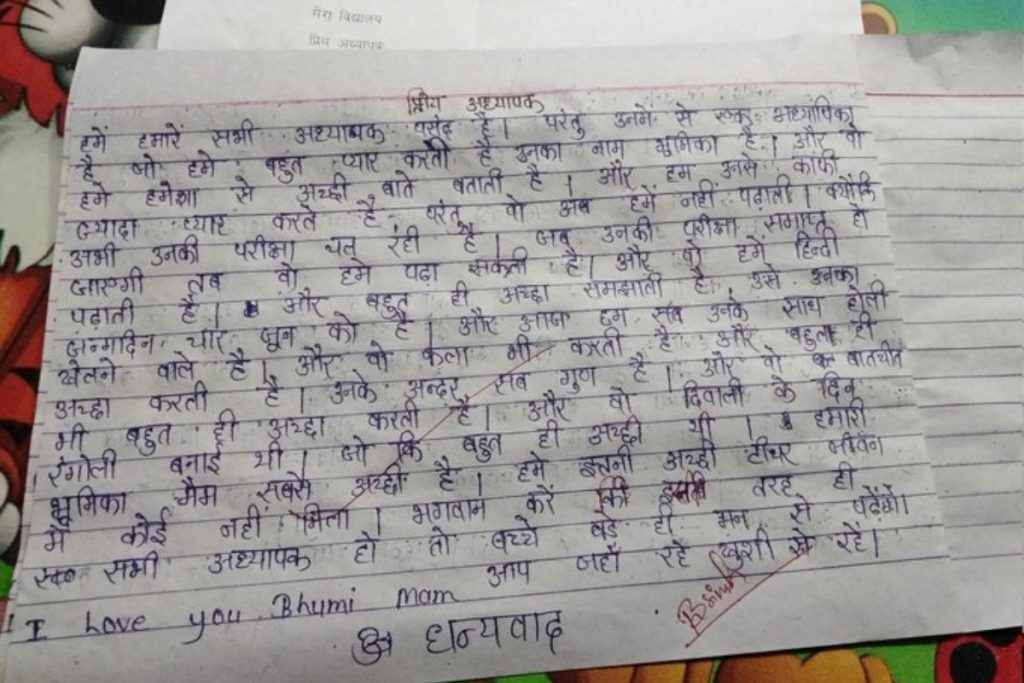 मेरा विद्यालय
प्रिय अध्यापक
प्रिय अध्यापक
हमें हमारे सभी अध्यापक पसंद है। परंतु उनमें से एक अध्यापिका
है जो हमे बहुत प्यार करती है उनका नाम भुमिका है। और वो
हमे हमेशा से अच्छी बाते बताती है। और हम उनसे काफी
ज्यादा प्यार करते है परंतु वो अब हमें नहीं पढ़ाती। क्योंकि
अभी उनकी परीक्षा चल रंही है। जब उनकी परीक्षा समाप्त हो
जाएगी तब वो हमे पढ़ा सकती है। और वो हमें हिन्दी
पढ़ाती है। और बहुत ही अच्छा समझाती है। उसे उनका
जन्मदिन चार जून को है। और आज हम सब उनके साथ होली
खेलने वाले है। और वो कला भी करती है और बहुत ही
अच्छा करती है। उनके अन्दर सब गुण है। और वो बातचीत
भी बहुत ही अच्छा करती है। और वो दिवाली के दिन
रंगोली बनाई थी। जो कि बहुत ही अच्छी थी। हमारी
भूमिका मैम सबसे अच्छी है। हमे इतनी अच्छी टीचर जीवन
में कोई नहीं मिला। भगवान करें की इसी तरह ही
सभी अध्यापक हो तो बच्चे बड़े ही मन से पढ़ेंगे।
आप जहाँ रहे खुशी से रहें।
I Love you Bhumi Mam
धन्यवाद